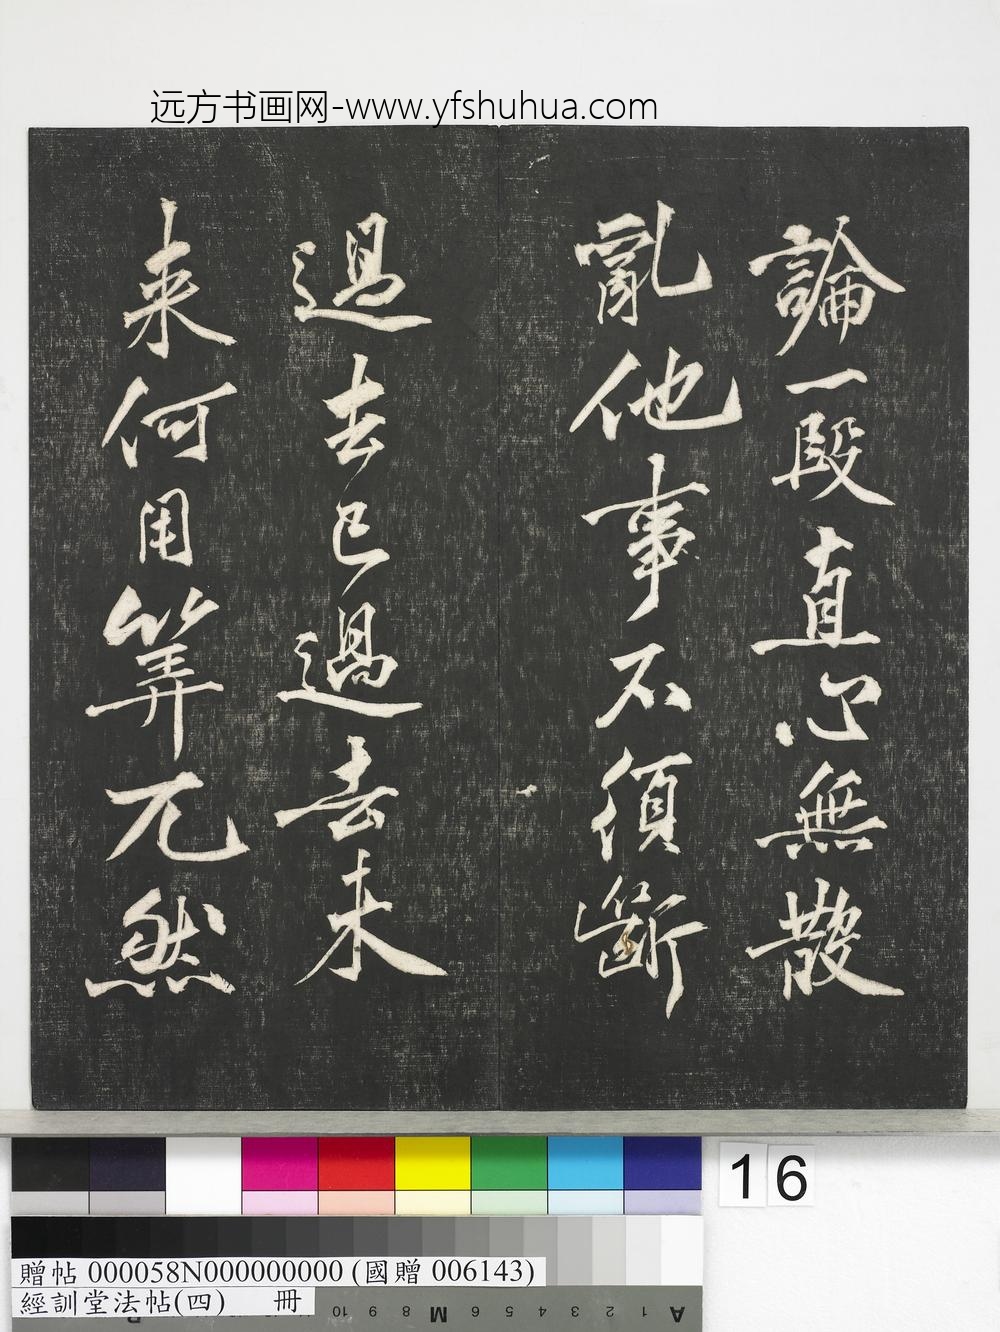 远方书画网-www.yfshuhua.com
論一段直心無散
亂他事不須斷
過去已過去未
來何用筭兀然
16
贈帖 000058N000000000 (國贈 006143)
經訓堂法帖(四) 冊
A 1 2 3 4 5 6 M 8 9 10